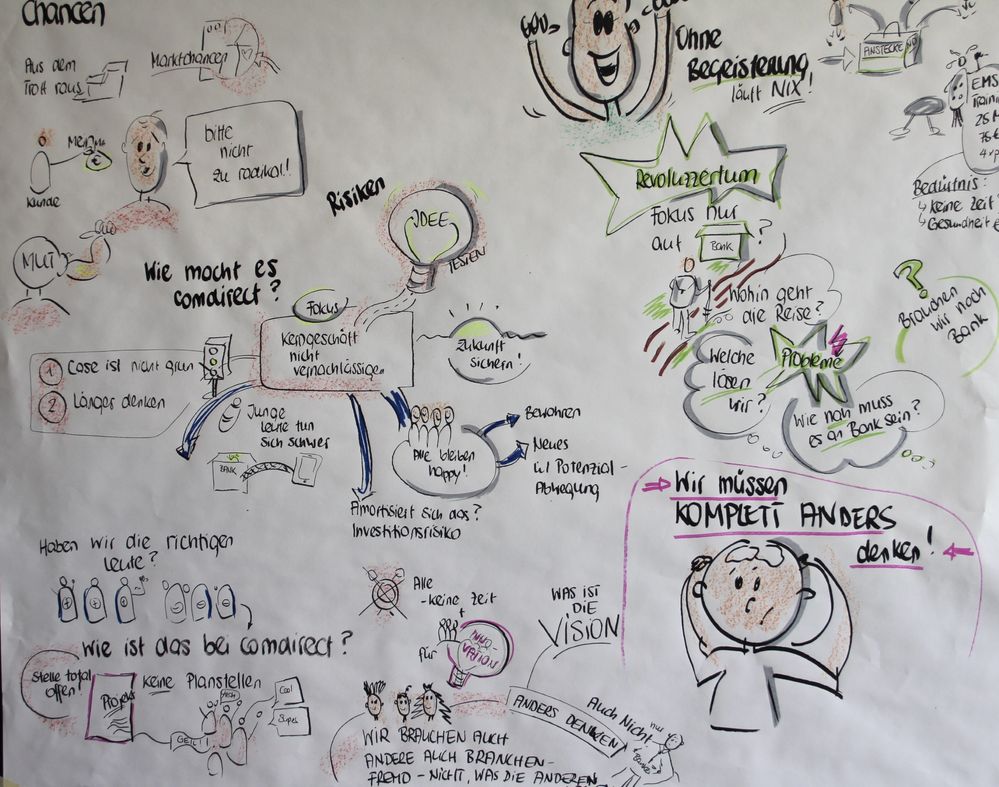 Chancen
Aus dem
Trott raus
Marktchancen
Kunde
bitte
nicht
zu radikal!
MUT
Risiken
IDEE
TESTEN
Wie macht es
comdirect?
Fokus
Kerngeschäft
nicht
vernachlässigen
Zukunft
sichern!
1 Case ist nicht grün
2 Länger denken
Junge
Leute tun
sich schwer
BANK
Alle bleiben
happy!
Bewahren
Neues
Potenzial-
Abwägung
Amortisiert sich das?
Investitionsrisiko
Haben wir die richtigen
Leute?
Wie ist das bei comdirect?
Stelle total
offen!
Projekt
Keine Planstellen
GEILT
Cool
Super
Alle
- keine Zeit
+
für
INNO-
VATION
WAS IST
DIE
VISION
ANDERS DENKEN
Auch Nicht
nur
WIR BRAUCHEN AUCH
ANDERE AUCH BRANCHEN-
FREMD - NICHT, WAS DIE ANDEREN
Ohne
Begeisterung
läuft NIX!
Revoluzzertum
Fokus nur
auf BANK?
Wohin geht
die Reise?
Welche
lösen
wir?
Probleme
Wie nah muss
es an Bank sein?
Brauchen
wir noch
Bank
?
Wir müssen
KOMPLETT ANDERS
denken!
ANSTECKEN
EMS
Traini
25 M
75 €
Bedürfnis:
↳ Keine Zeit
↳ Gesundheit